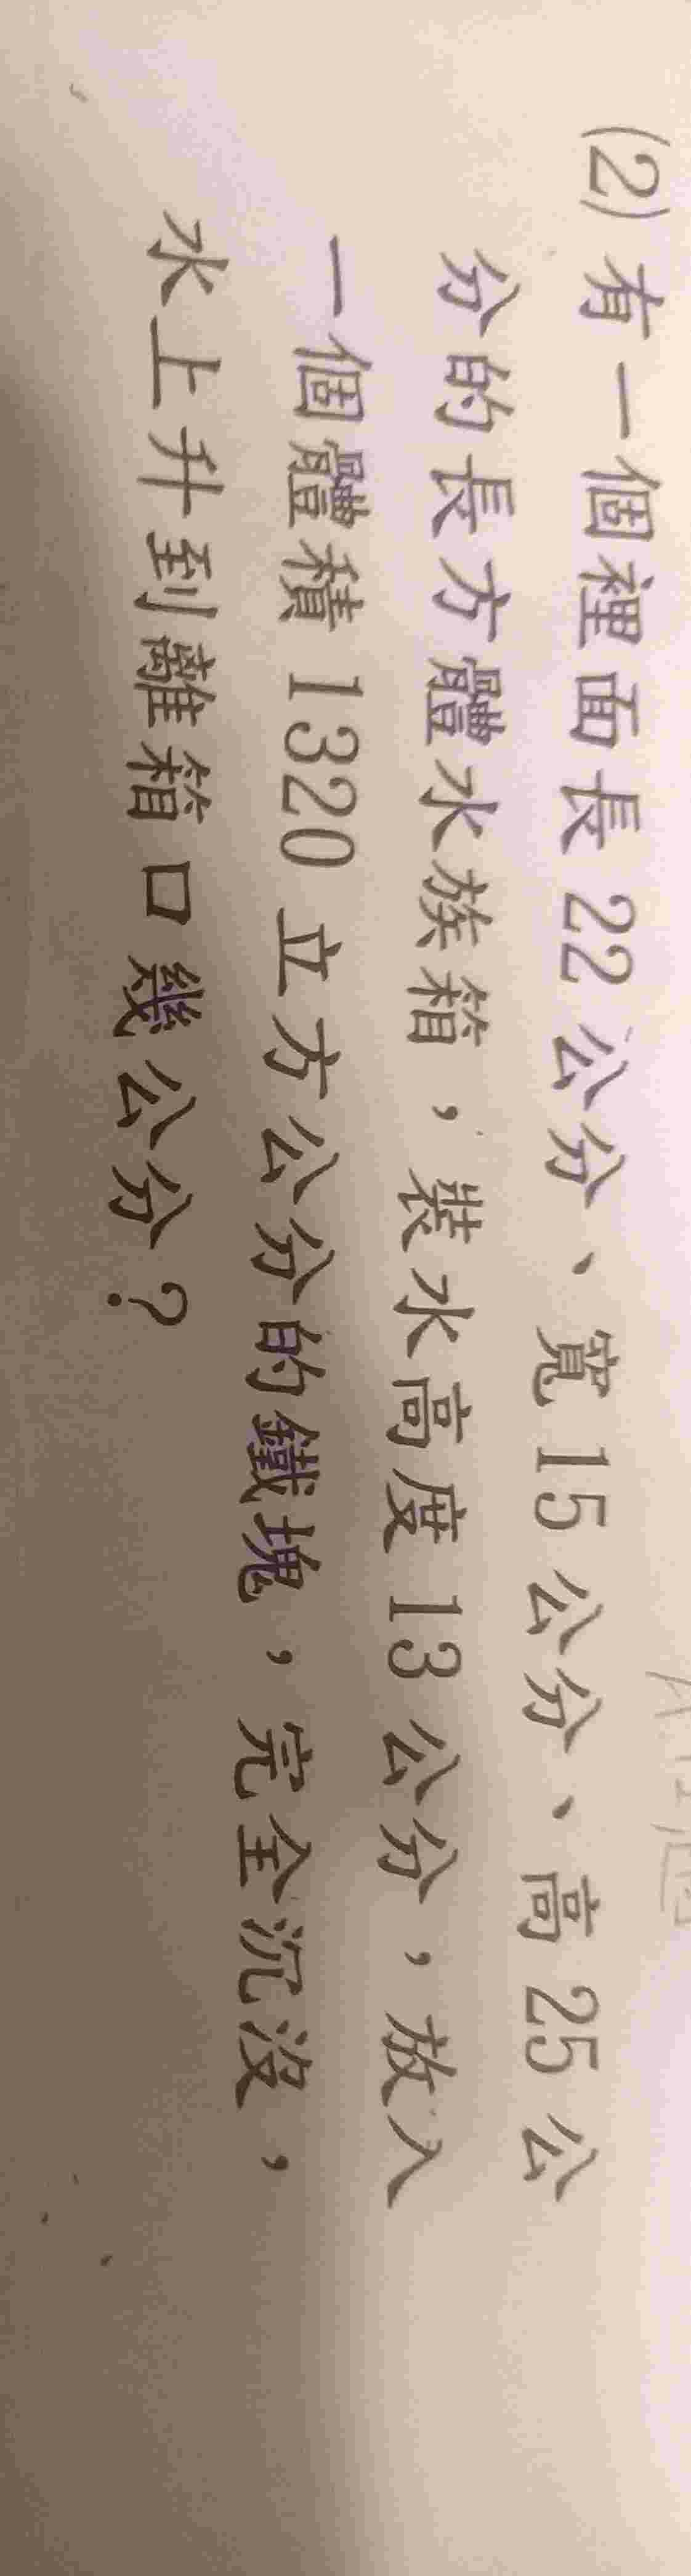 (2) 有一個裡面長22公分、寬15公分、高25公
分的長方體水族箱，裝水高度13公分，放入
一個體積1320立方公分的鐵塊，完全沉沒，
水上升到離箱口幾公分？